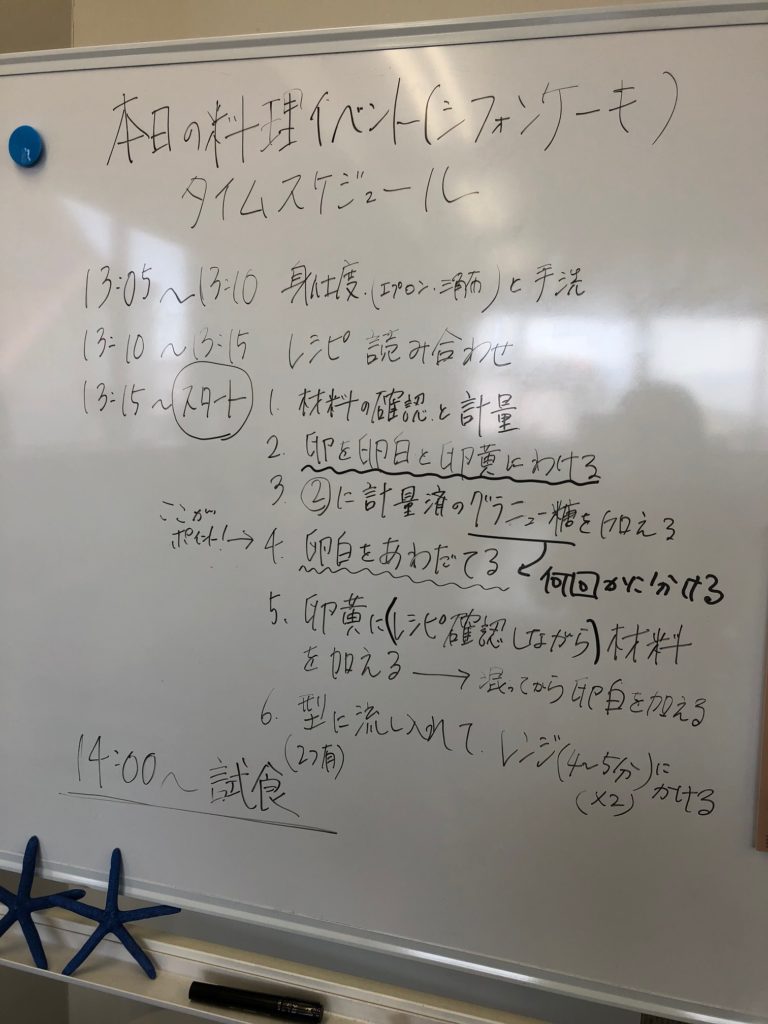 本日の料理イベント(シフォンケーキ)
タイムスケジュール
13:05～13:10 身仕度.(エプロン.三角布)と手洗
13:10～13:15 レシピ 読み合わせ
13:15～スタート 1. 材料の確認と計量
2. 卵を卵白と卵黄にわける
3 ②に計量済のグラニュー糖を加える
ここが
ポイント!→ 4. 卵白をあわだてる
何回かに分ける
5. 卵黄に(レシピ確認しながら)材料
を加える → 混ってから卵白を加える
6. 型に流し入れて. レンジ(4～5分)に
(2つ有) (×2) かける
14:00～試食